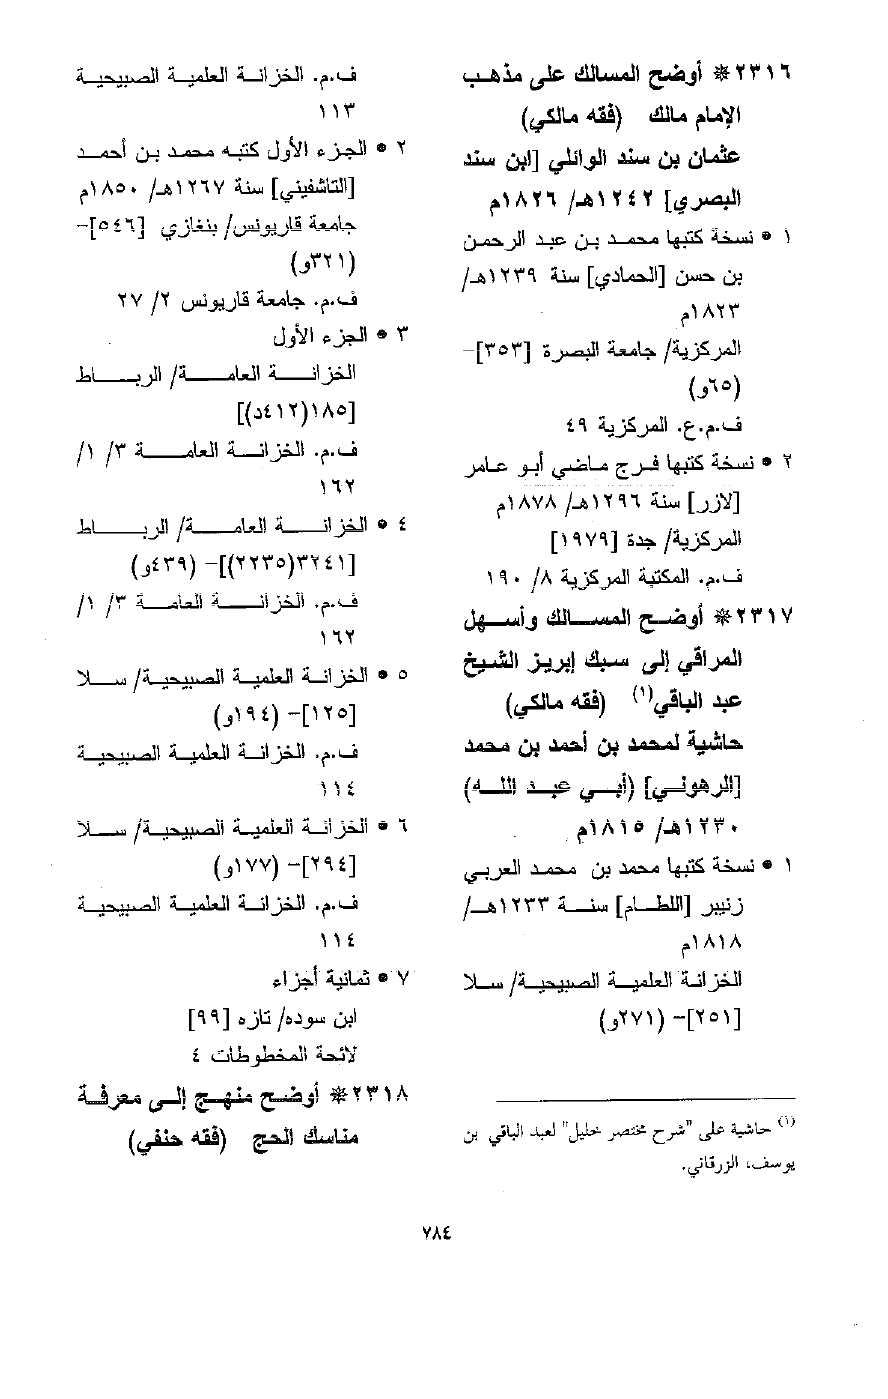 ٢٣١٦* أوضح المسالك على مذهب
الإمام مالك (فقه مالكي)
عثمان بن سند الوائلي [ابن سند
البصري] ١٢٤٢هـ/ ١٨٢٦م
١ • نسخة كتبها محمد بن عبد الرحمن
بن حسن [الحمادي] سنة ١٢٣٩هـ/
١٨٢٣م
المركزية/ جامعة البصرة [٣٥٣]-
(٦٥و)
ف.م.ع. المركزية ٤٩
٢ • نسخة كتبها فرج ماضي أبو عامر
[لازر] سنة ١٢٩٦هـ/ ١٨٧٨م
المركزية/ جدة [١٩٧٩]
ف.م. المكتبة المركزية ٨/ ١٩٠
٢٣١٧* أوضح المسالك وأسهل
المراقي إلى سبك إبريز الشيخ
عبد الباقي(١) (فقه مالكي)
حاشية لمحمد بن أحمد بن محمد
[الرهوني] (أبي عبد الله)
١٢٣٠هـ/ ١٨١٥م
١ • نسخة كتبها محمد بن محمد العربي
زنيبر [اللطام] سنة ١٢٣٣هـ/
١٨١٨م
الخزانة العلمية الصبيحية/ سلا
[٢٥١]- (٢٧١و)
(١) حاشية على "شرح مختصر خليل" لعبد الباقي بن
يوسف، الزرقاني.
ف.م. الخزانة العلمية الصبيحية
١١٣
٢ • الجزء الأول كتبه محمد بن أحمد
[التاشفيني] سنة ١٢٦٧هـ/ ١٨٥٠م
جامعة قاريونس/ بنغازي [٥٤٦]-
(٣٢١و)
ف.م. جامعة قاريونس ٢/ ٢٧
٣ • الجزء الأول
الخزانة العامة/ الرباط
[١٨٥(٤١٢د)]
ف.م. الخزانة العامة ٣/ ١/
١٦٢
٤ • الخزانة العامة/ الرباط
[٣٢٤١(٢٢٣٥)]- (٤٣٩و)
ف.م. الخزانة العامة ٣/ ١/
١٦٢
٥ • الخزانة العلمية الصبيحية/ سلا
[١٢٥]- (١٩٤و)
ف.م. الخزانة العلمية الصبيحية
١١٤
٦ • الخزانة العلمية الصبيحية/ سلا
[٢٩٤]- (١٧٧و)
ف.م. الخزانة العلمية الصبيحية
١١٤
٧ • ثمانية أجزاء
ابن سوده/ تازه [٩٩]
لائحة المخطوطات ٤
٢٣١٨* أوضح منهج إلى معرفة
مناسك الحج (فقه حنفي)
٧٨٤